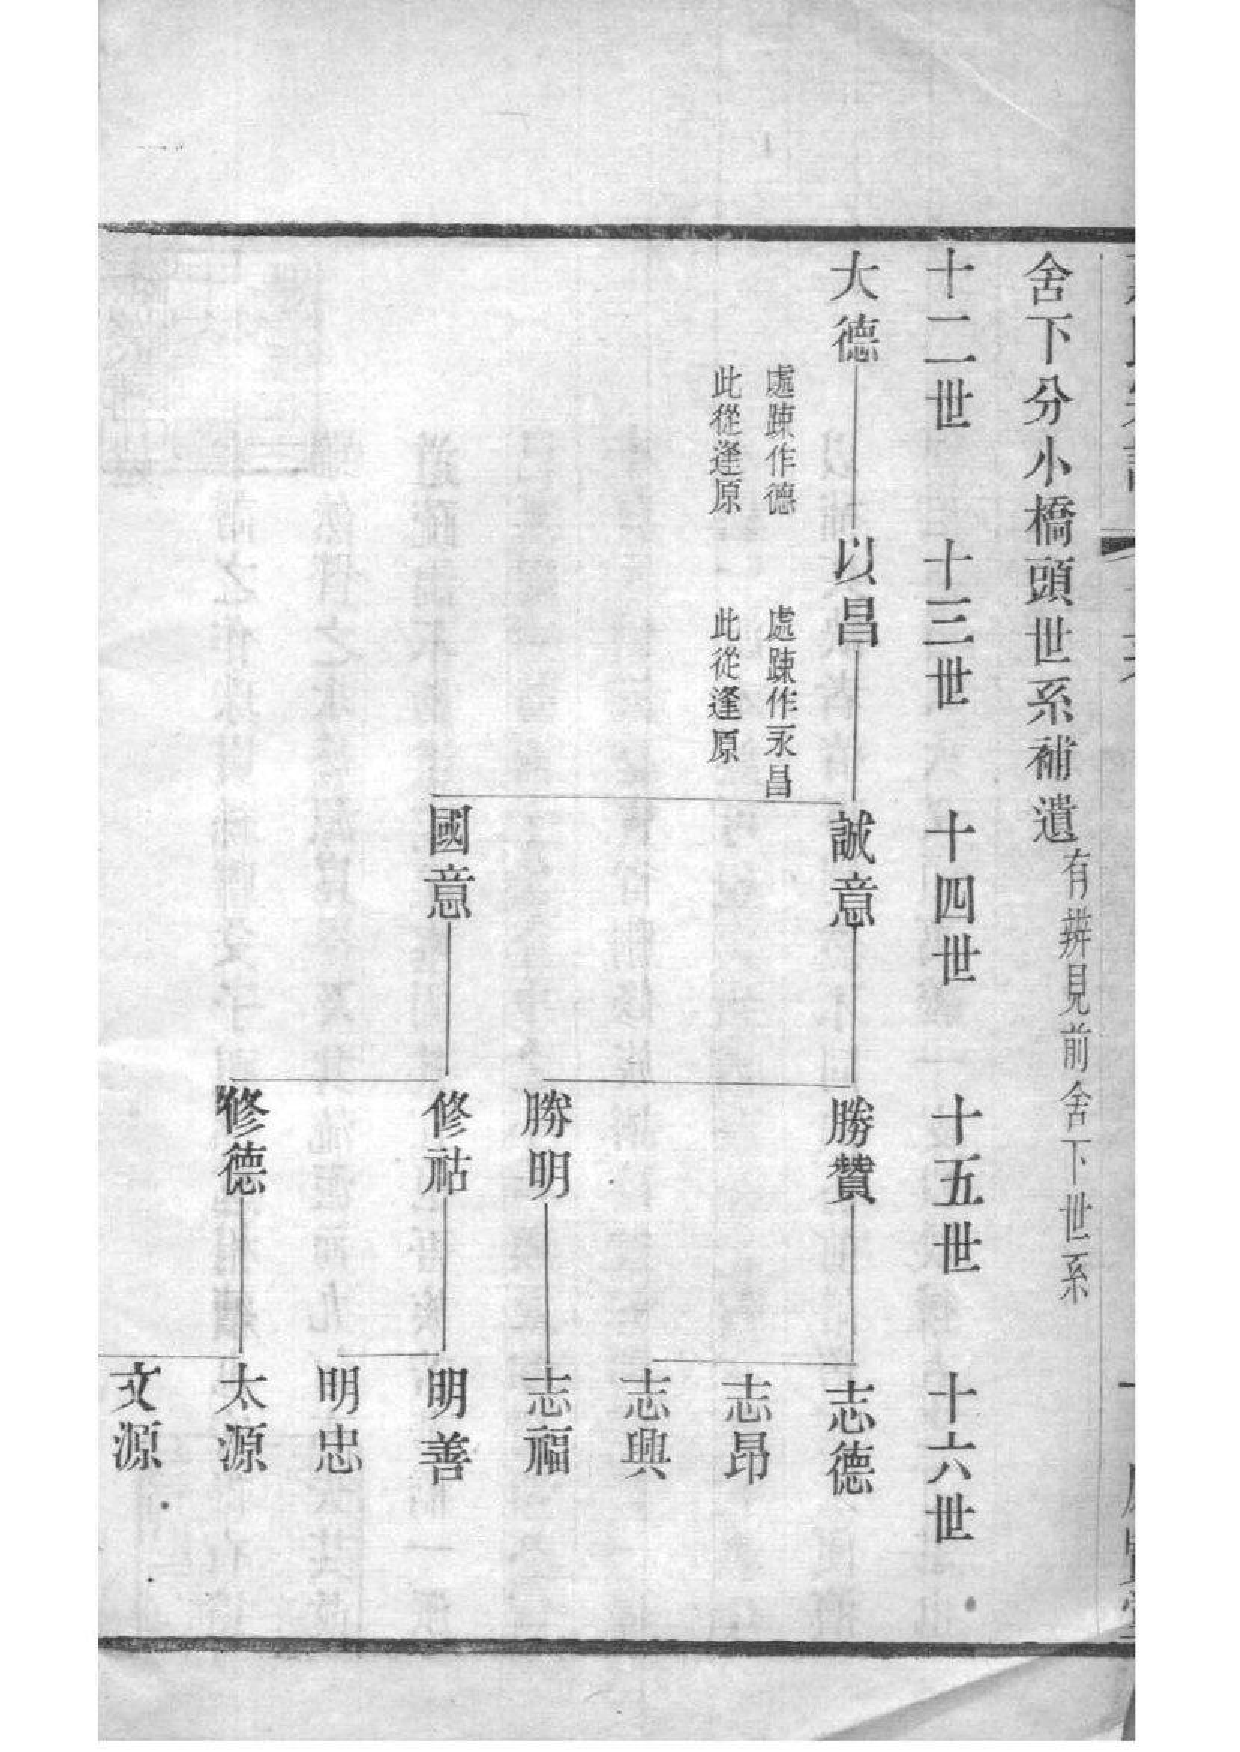 舍下分小橋頭世系補遺有辨見前舍下世系
十二世 十三世 十四世 十五世 十六世
大德 以昌 誠意 勝贊 志德
處踈作德
此從逢原
處踈作永昌
此從逢原
志昂
志興
勝明 志福
國意 修祜 明善
明忠
修德 太源
文源